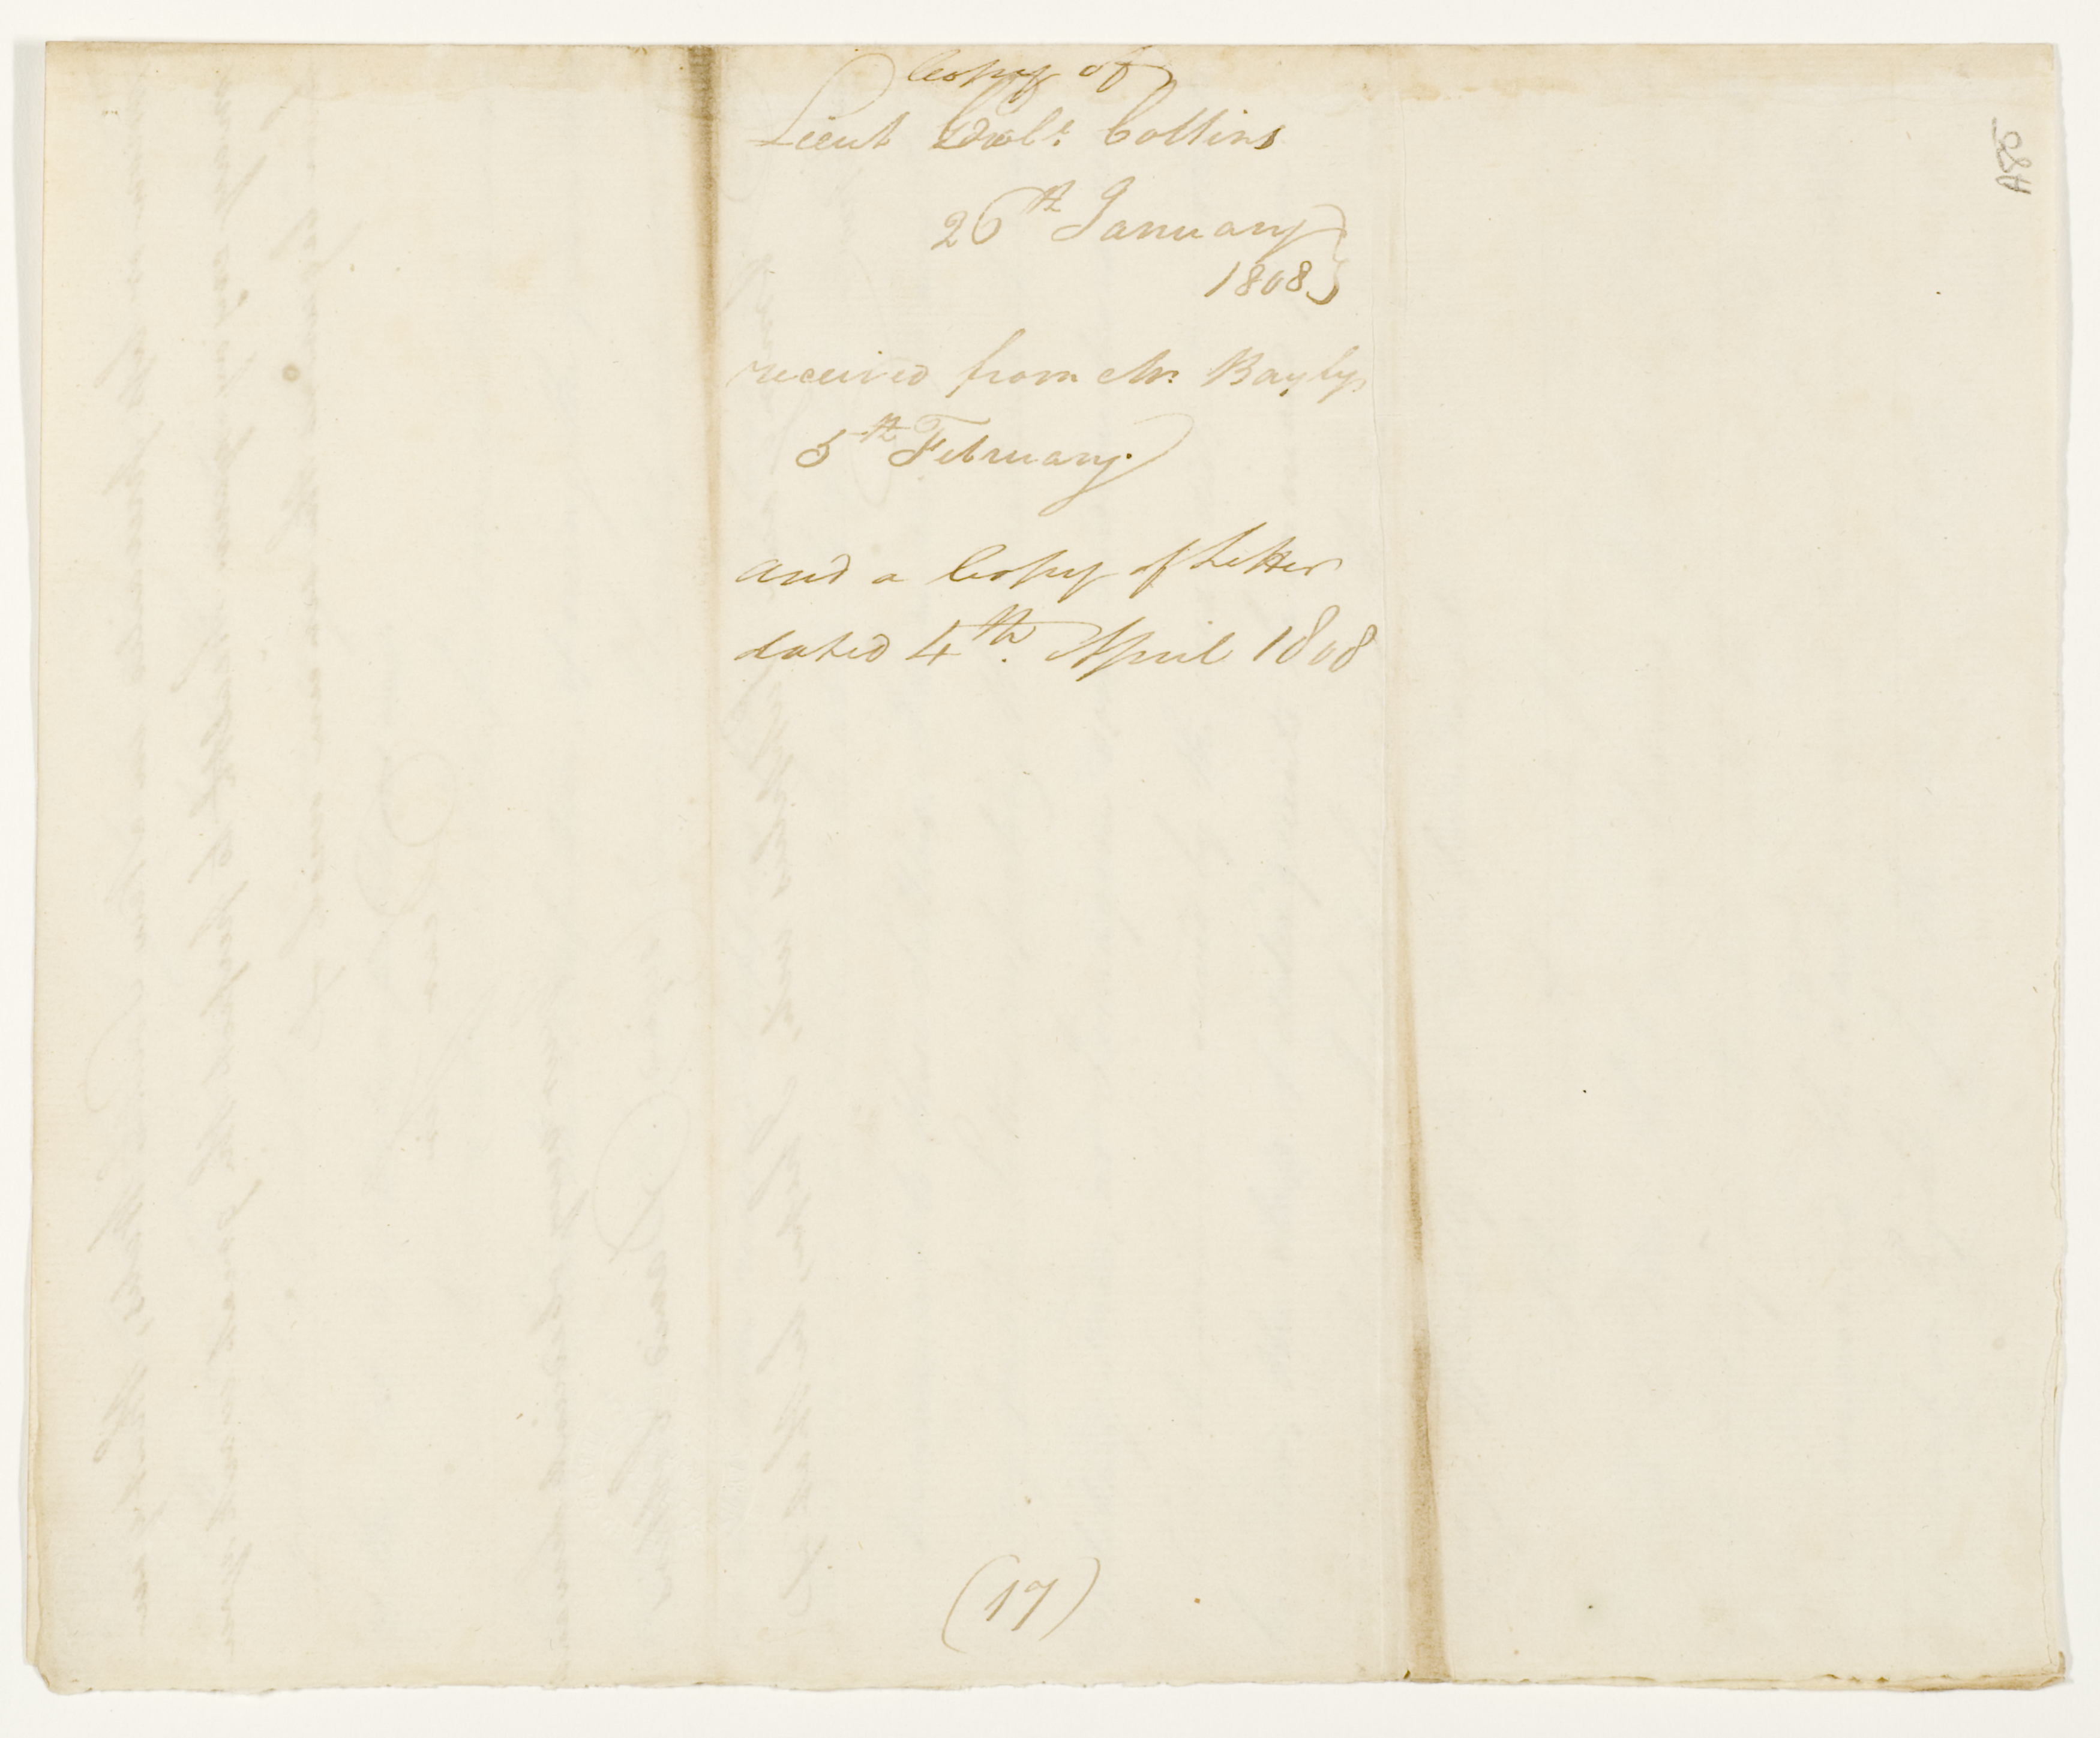 Copy of
Lieut Govr. Collins
26th January
1808
received from Mr Bayly
5th February.
and a Copy of Letter
dated 4th. April 1808
(17)
A85